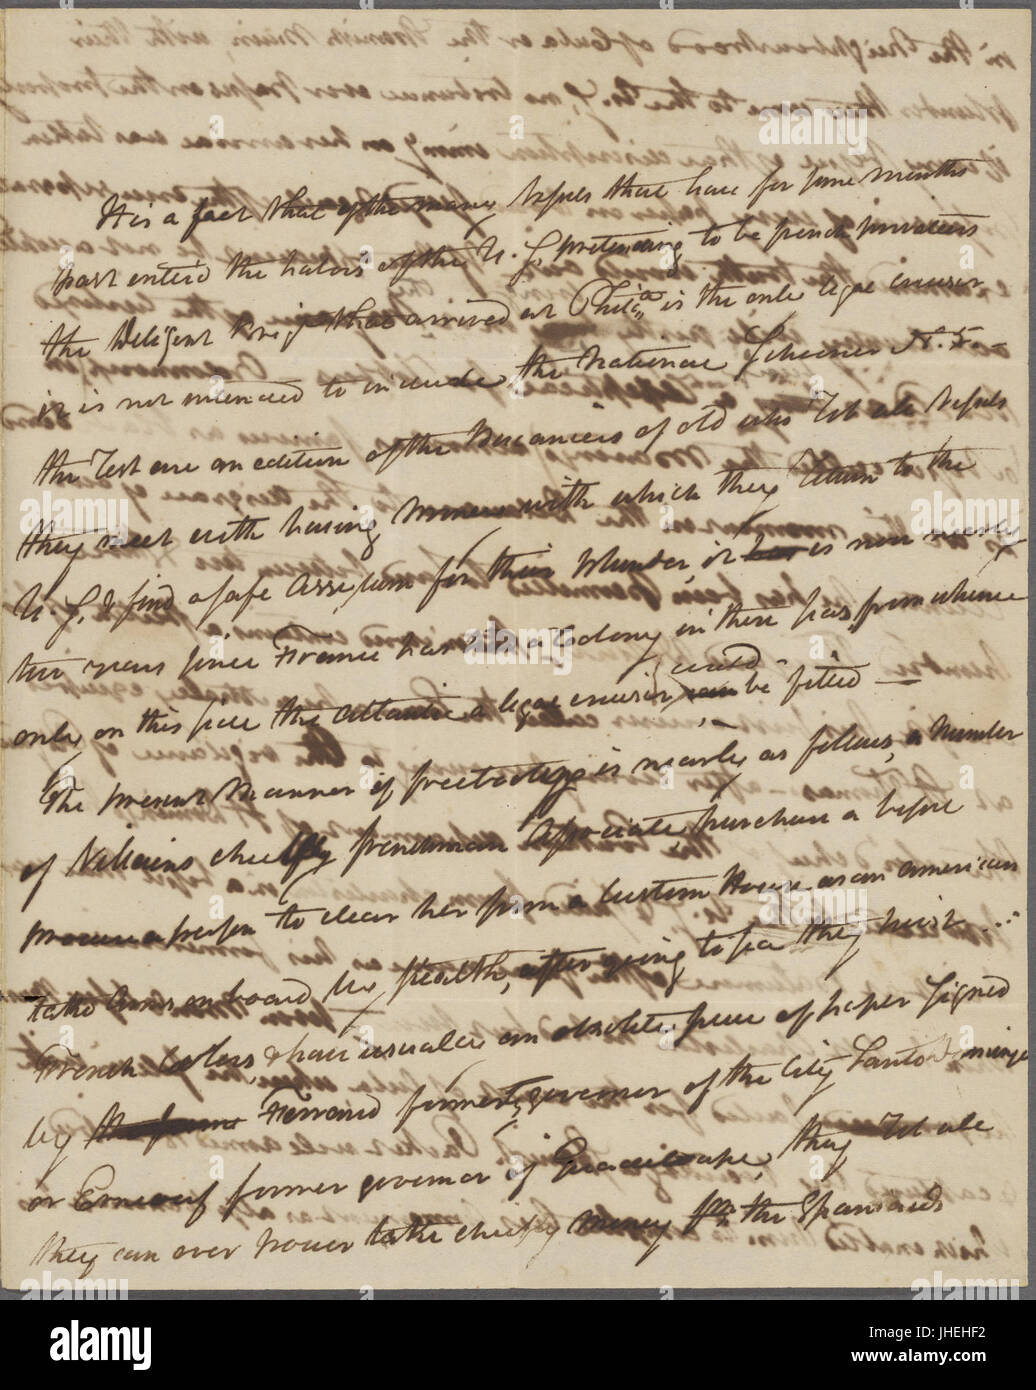 It is a fact that of the many Vessels that have for some months
past enter'd the harbors of the U. S. pretending to be french privateers
the Diligent Brig that arrived at Phila. is the only legal cruiser
it is not intended to include the National Schooner
the Rest are an edition of the Bucaniers of old who Rob all Vessels
they meet with having Money with which they return to the
U. S. & find a safe Assylum for their Plunder, it is now nearly
two years since France has had a Colony in these seas from whence
only on this side the Atlantic a legal cruiser could be fitted —
The present Manner of freebooting is nearly as follows, a Number
of Villains chiefly frenchmen Associate, purchase a Vessel
procure a person to clear her from a Custom House as an American
take Arms on board by stealth, after going to sea they hoist
French Colors, & have usually an obsolete piece of paper signed
by Ferrand formerly governor of the City Santo Domingo
or Ernouf former governor of Guadeloupe, they Rob all
they can over power take chiefly money from the Spaniards
alamy
Image ID: JHEHF2
www.alamy.com